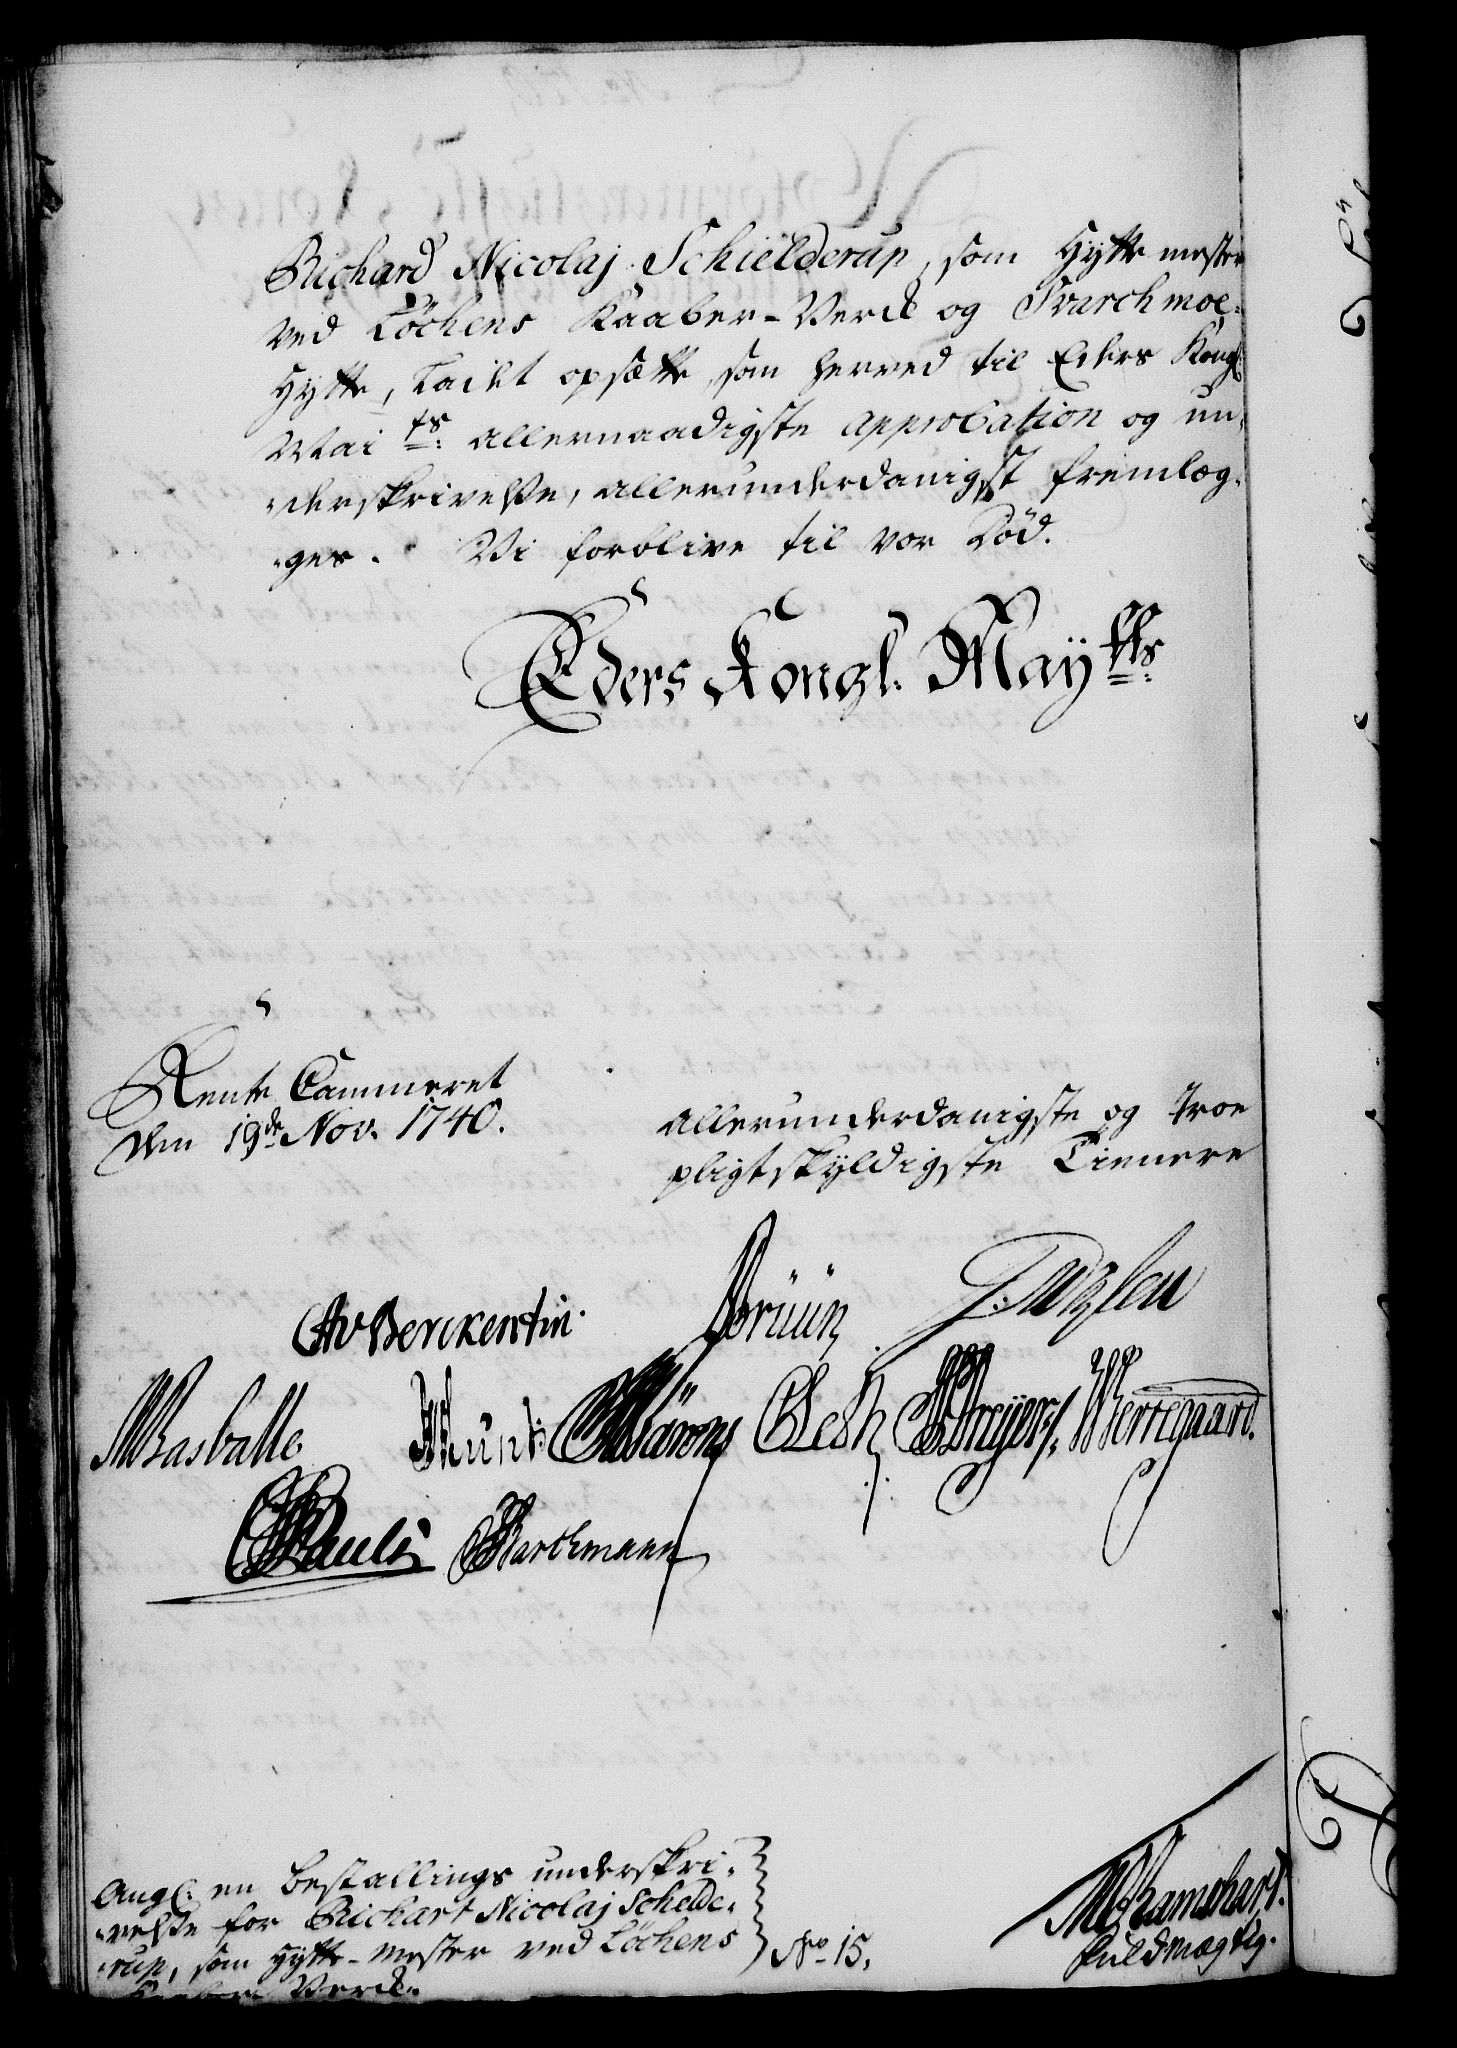 Richard Nicolaj Schielderup, som Hyttemester
ved Löchens Kaaber-Verck og Svarchmoe-
Hytte, ladet opsætte, som herved til Eders Kongl:
Mai ts: allernaadigste approbation og un-
-derskrivelse, allerunderdanigst fremlæg-
-ges. Vi forblive til vor Död.
Eders Kongl. Mayts:
Rente Cammeret
den 19de Nov. 1740.
allerunderdanigste og troe
pligtskyldigste Tienere
CAvBerckentin. Brüün
Basballe Munt CLesch Dreyer Wertegaard.
Pauli Barthmann
Ang: en bestallings underskri-
-velse for Richart Nicolaj Schelde-
-rup, som Hytte-mester ved Löchens
Kaaber Verck.
No 15.
Ramshart.
fuldmægtig.